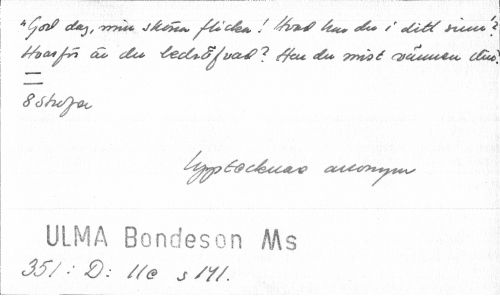 "God dag, min sköna flicka! Hvad har du i ditt sinn'?
Hvarför är du bedröfvad? Har du mist vännen din?
8 strofer
Upptecknad anonym
ULMA Bondeson Ms
351: D: 11c s 141.